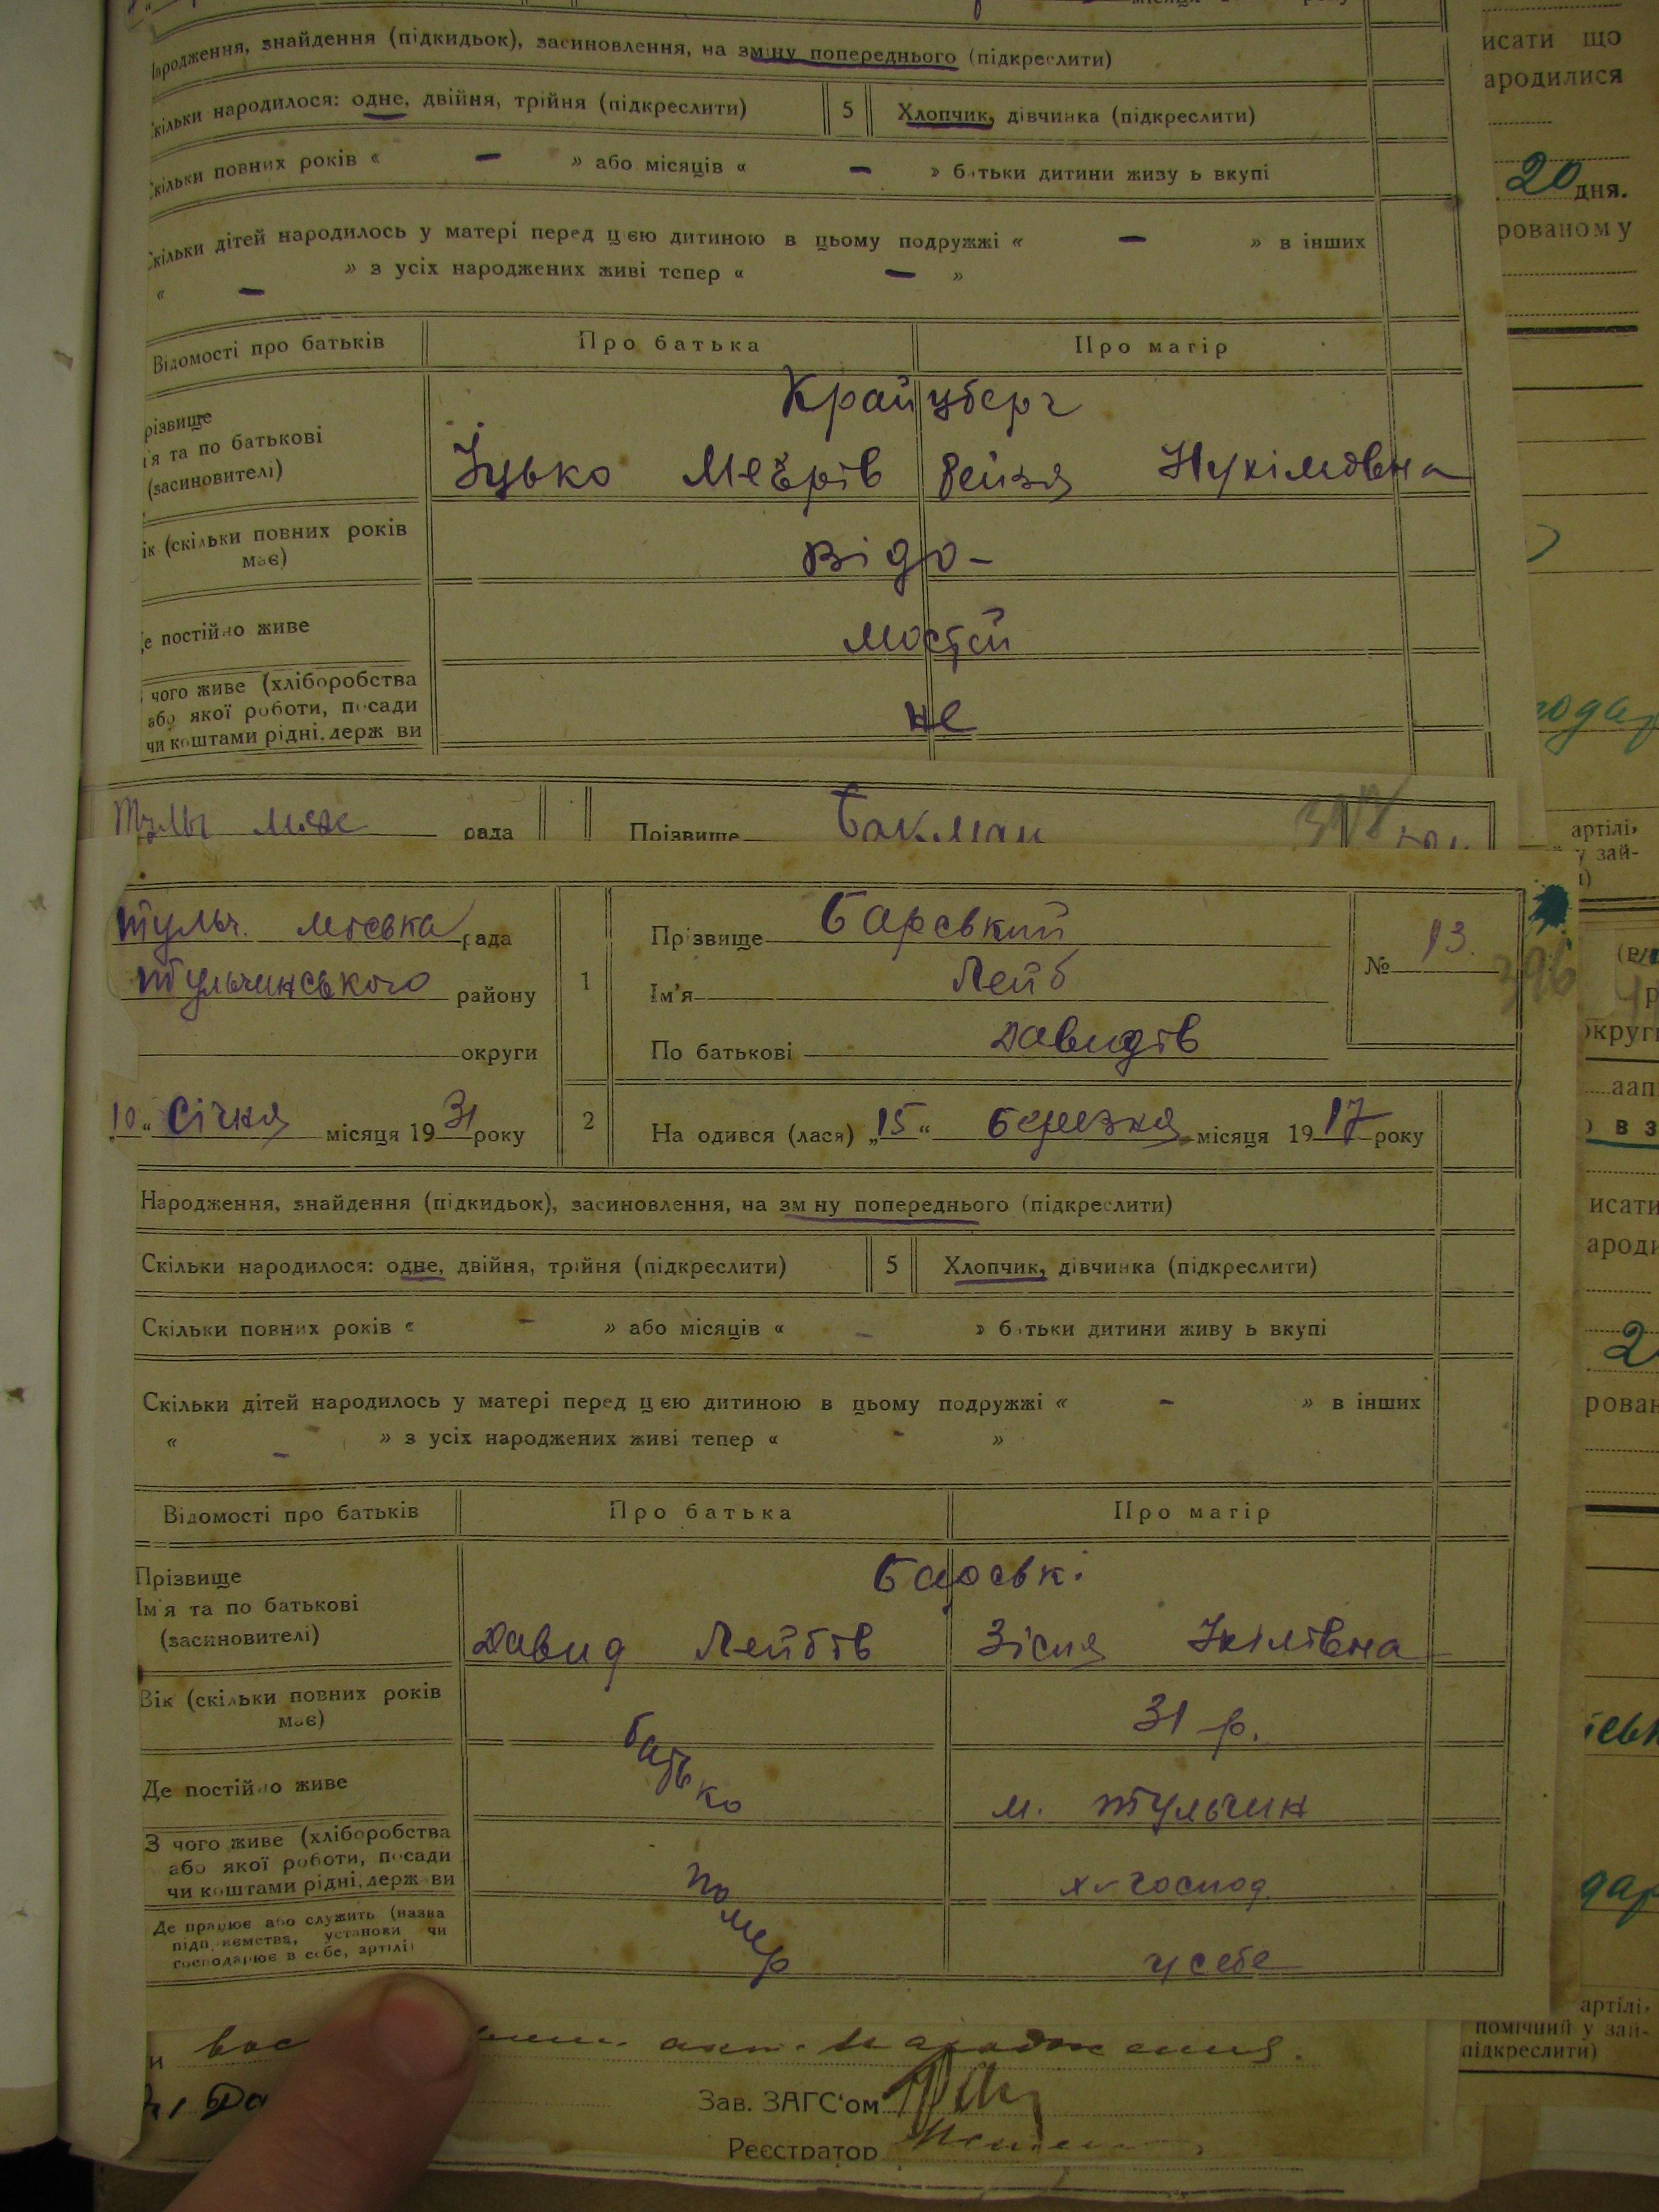 народження, знайдення (підкидьок), засиновлення, на зміну попереднього (підкреслити)
скільки народилося: одне, двійня, трійня (підкреслити) 5 Хлопчик, дівчинка (підкреслити)
скільки повних років « — » або місяців « — » батьки дитини живуть вкупі
скільки дітей народилось у матері перед цією дитиною в цьому подружжі « — » в інших
« — » з усіх народжених живі тепер « — »
Відомості про батьків Про батька Про матір
різвище
Крайцберг
я та по батькові
(засиновителі)
Іцько Меєрів Рейзя Нухімовна
ік (скільки повних років має)
Відо-
е постійно живе
мостей
чого живе (хліборобства
або якої роботи, посади
чи коштами рідні, держави
не
рада Прізвище Бакман
Тульч. міська рада 1 Прізвище Барський № 13.
396
Тульчинського району Ім'я Лейб
округи По батькові Давидів
10 „ Січня місяця 1931 року 2 Народився (лася) „15“ Березня місяця 1917 року
Народження, знайдення (підкидьок), засиновлення, на зміну попереднього (підкреслити)
Скільки народилося: одне, двійня, трійня (підкреслити) 5 Хлопчик, дівчинка (підкреслити)
Скільки повних років « — » або місяців « — » батьки дитини живуть вкупі
Скільки дітей народилось у матері перед цією дитиною в цьому подружжі « — » в інших
« — » з усіх народжених живі тепер « — »
Відомості про батьків Про батька Про матір
Прізвище
Барські
Ім'я та по батькові
(засиновителі)
Давид Лейбів Зіся Іхілівна
Вік (скільки повних років має)
31 р.
Де постійно живе
батько
м. Тульчин
З чого живе (хліборобства
або якої роботи, посади
чи коштами рідні, держави
господ
Де працює або служить (назва
підприємства, установи чи
господарює в себе, артілі)
помер
у себе
Зав. ЗАГС'ом
Реєстратор
исати що
ародилися
20 дня.
рованому
артілі,
у зай-
округи
в з
исати
ароди
рован
артілі,
помічний у зай-
підкреслити)